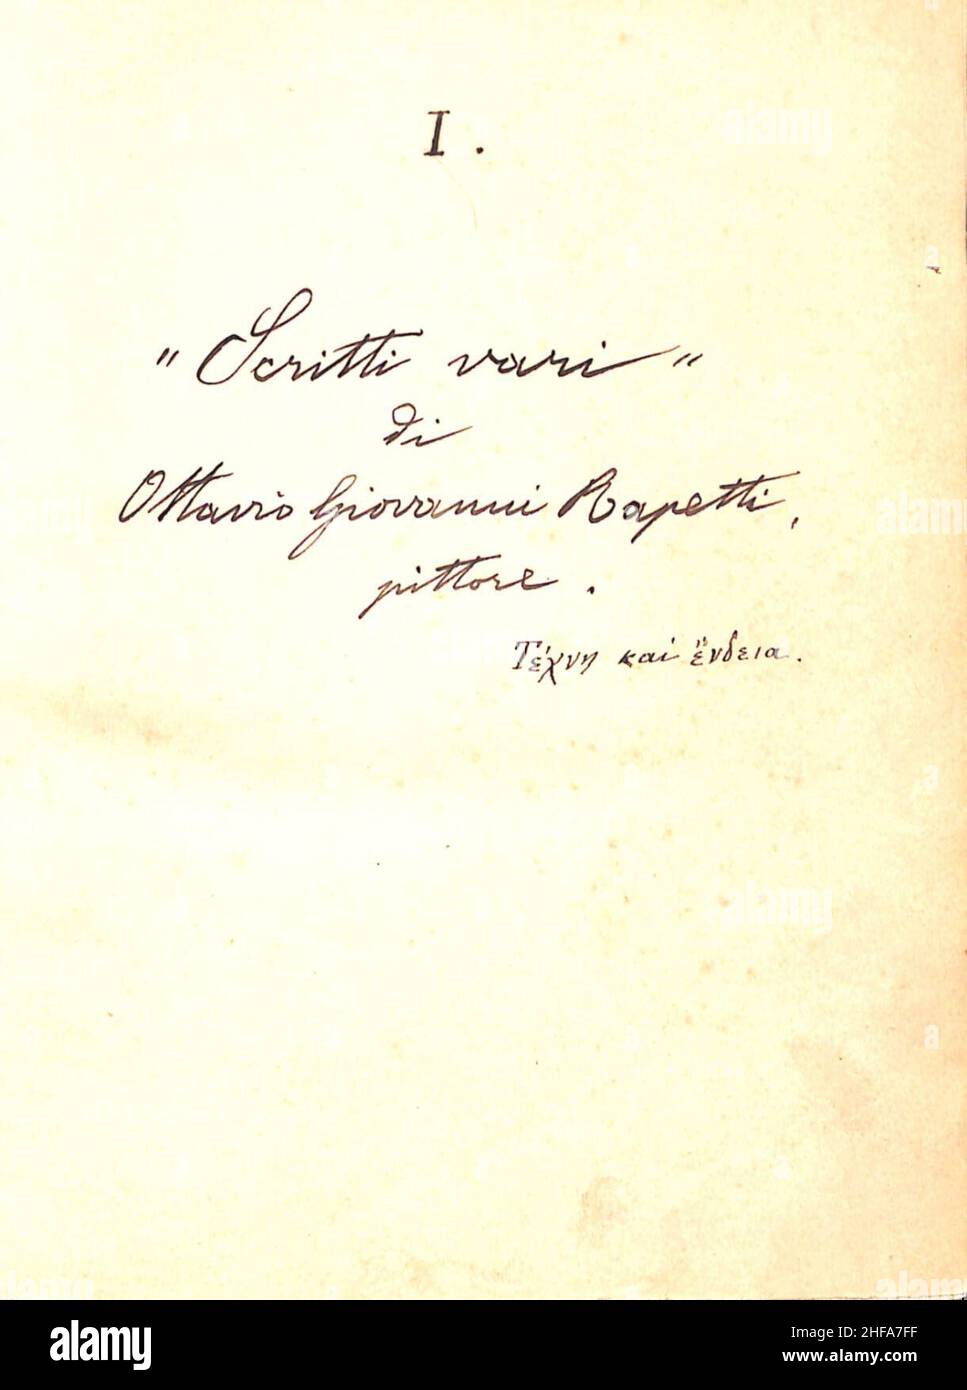 I.
" Scritti vari "
di
Ottavio Giovanni Rapetti,
pittore.
Τέχνη καὶ ἔνδεια.
alamy
Image ID: 2HFA7FF
www.alamy.com